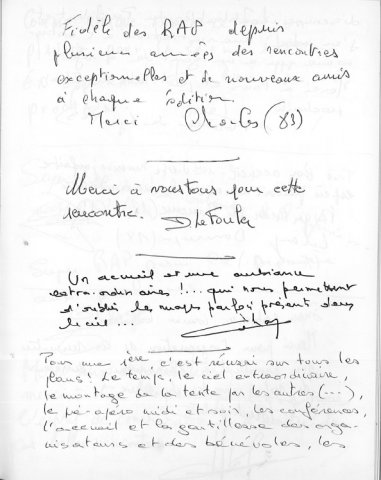 Fidèle des RAP depuis
plusieurs années des rencontres
exceptionnelles et de nouveaux amis
à chaque édition.
Merci Charles (83)
Merci à vous tous pour cette
rencontre.
Un accueil et une ambiance
extra-ordinaires !... qui nous permettent
d'oublier les nuages parfois présent dans
le ciel...
Pour une 1ère, c'est réussi sur tous les
plans ! Le temps, le ciel extraordinaire,
le montage de la tente par les autres (...),
le pér apéro midi et soir, les conférences,
l'accueil et la gentillesse des orga-
nisateurs et des bénévoles, les